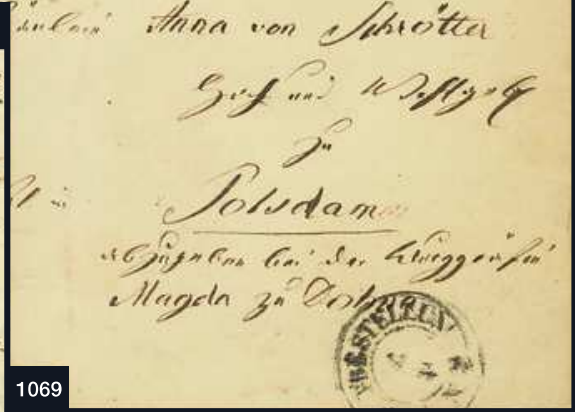 Fräulein Anna von Schrötter
Hoch und
zu
Potsdam
abzugeben bei der Burggräfin
Magda zu Dohna
1069